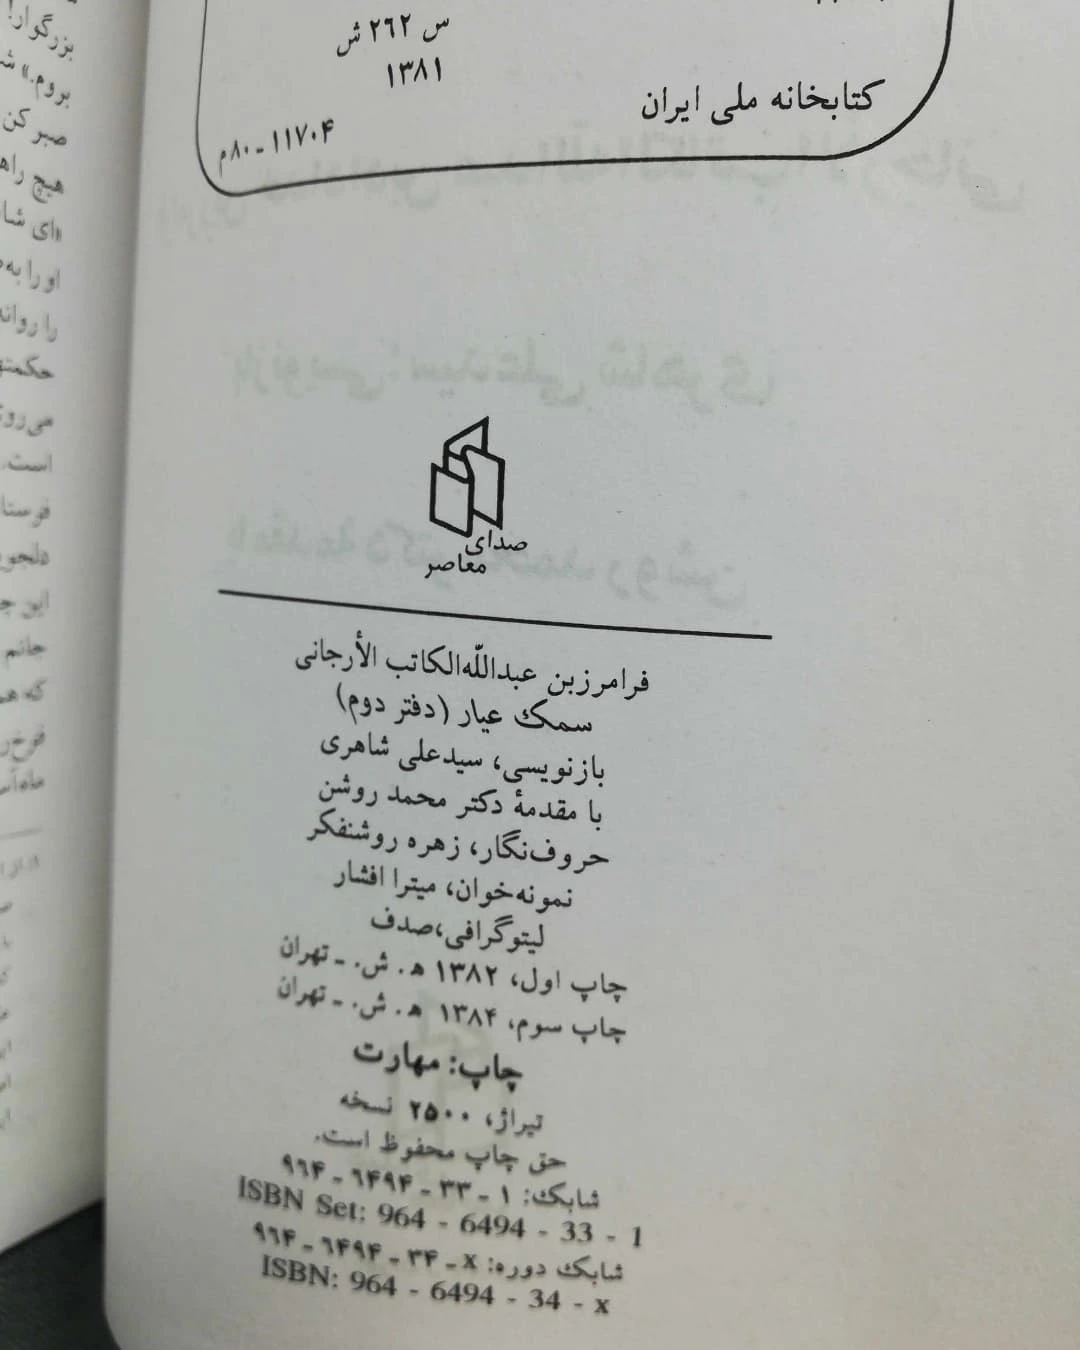 س ۲۶۲ ش
۱۳۸۱
کتابخانه ملی ایران
۱۱۷۰۴-۸۰م
صدای
معاصر
فرامرزبن عبداللّه‌الکاتب الأرجانی
سمک عیار (دفتر دوم)
بازنویسی، سیدعلی شاهری
با مقدمهٔ دکتر محمد روشن
حروف‌نگار، زهره روشنفکر
نمونه‌خوان، میترا افشار
لیتوگرافی،صدف
چاپ اول، ۱۳۸۲ ه‍. ش. ـ تهران
چاپ سوم، ۱۳۸۴ ه‍. ش. ـ تهران
چاپ: مهارت
تیراژ، ۲۵۰۰ نسخه
حق چاپ محفوظ است.
شابک: ۱ ـ ۳۳ ـ ۶۴۹۴ ـ ۹۶۴
ISBN Set: 964 - 6494 - 33 - 1
شابک دوره: x ـ ۳۴ ـ ۶۴۹۴ ـ ۹۶۴
ISBN: 964 - 6494 - 34 - x
بزرگوار!
بروم.»
صبر کن
هیچ
«ای
او را
را
می‌رو
است.
این
جانم
که